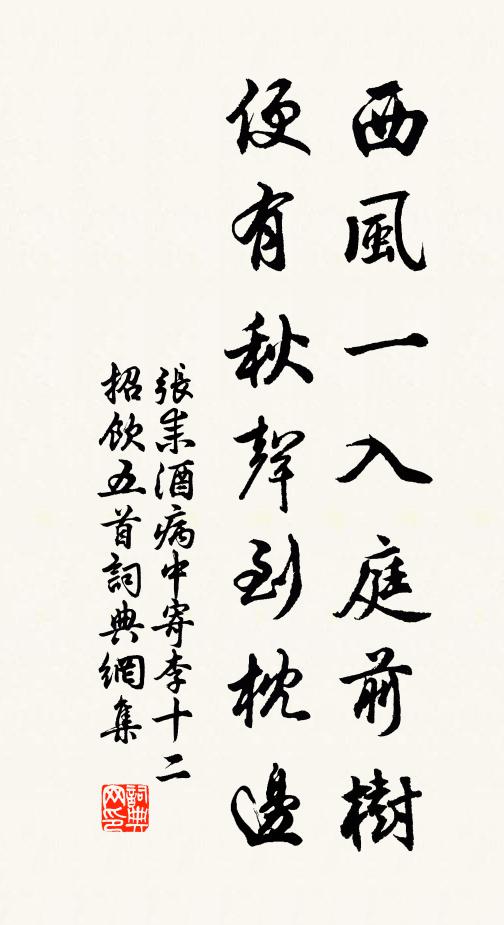 西風一入庭前樹
便有秋聲到枕邊
張耒酒病中寄李十二
招飲五首詞典網集
詞典
网印